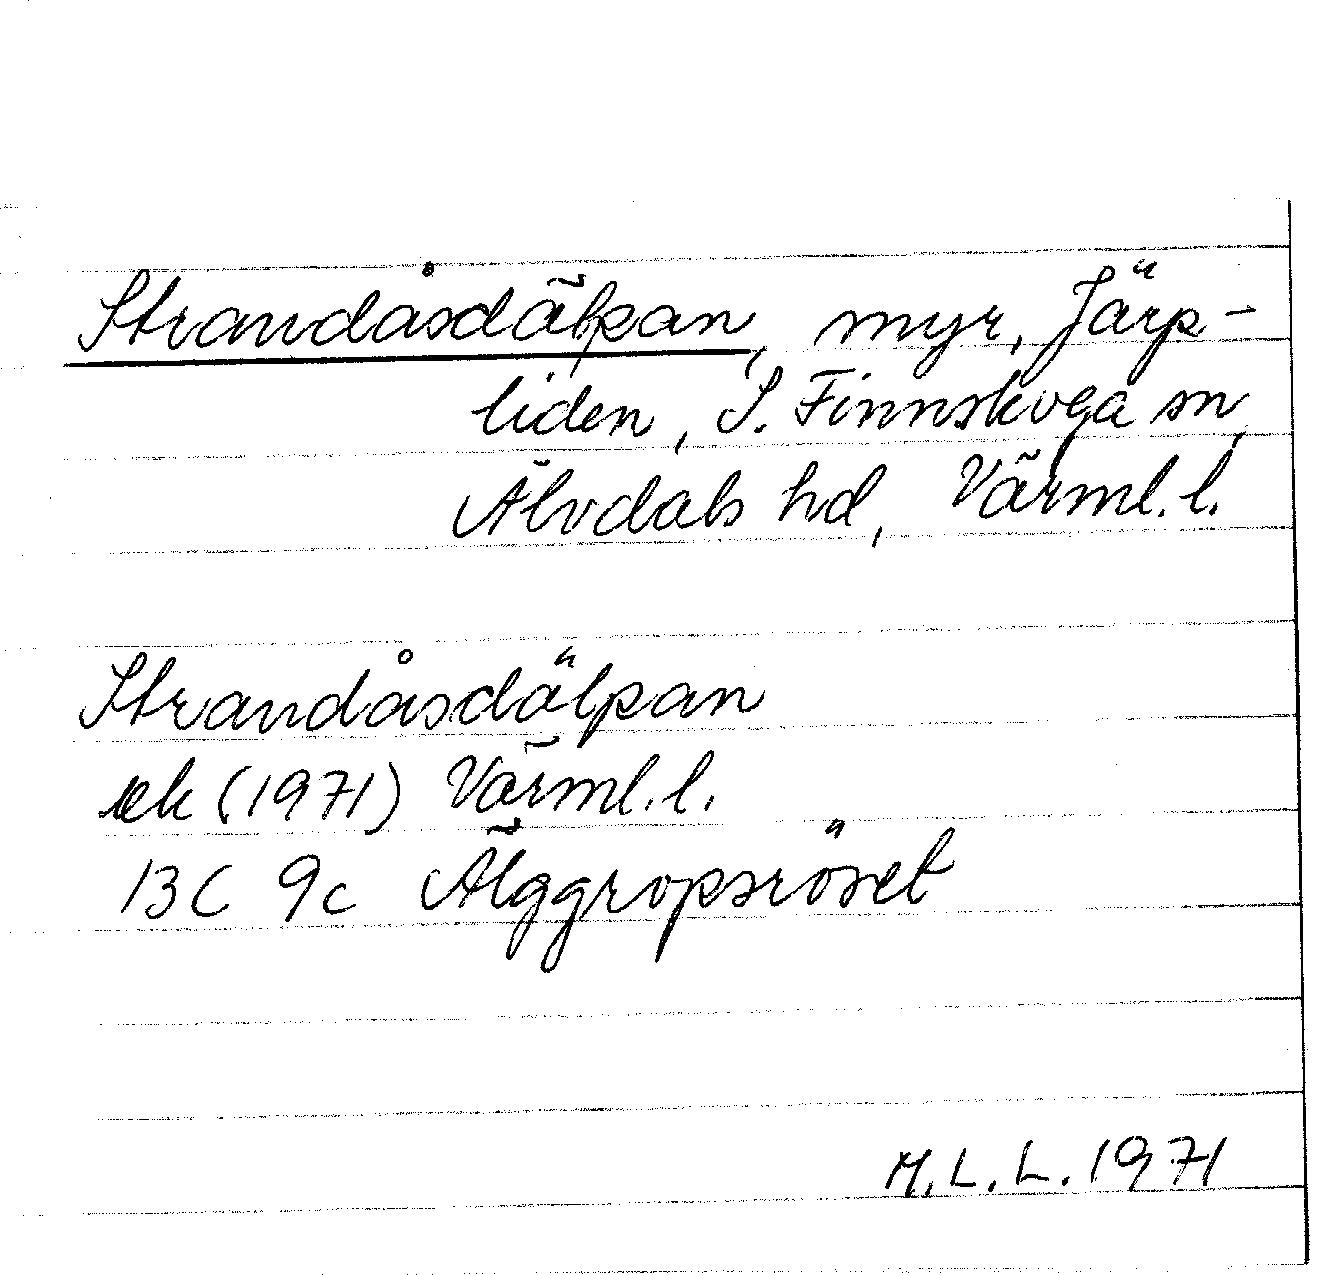 Strandåsdälpan, myr, Järp-
liden, S. Finnskoga sn,
Älvdals hd, Värml. l.
Strandåsdälpan
ek (1971) Värml. l.
13C 9c Älggropsröset
M.L.L. 1971